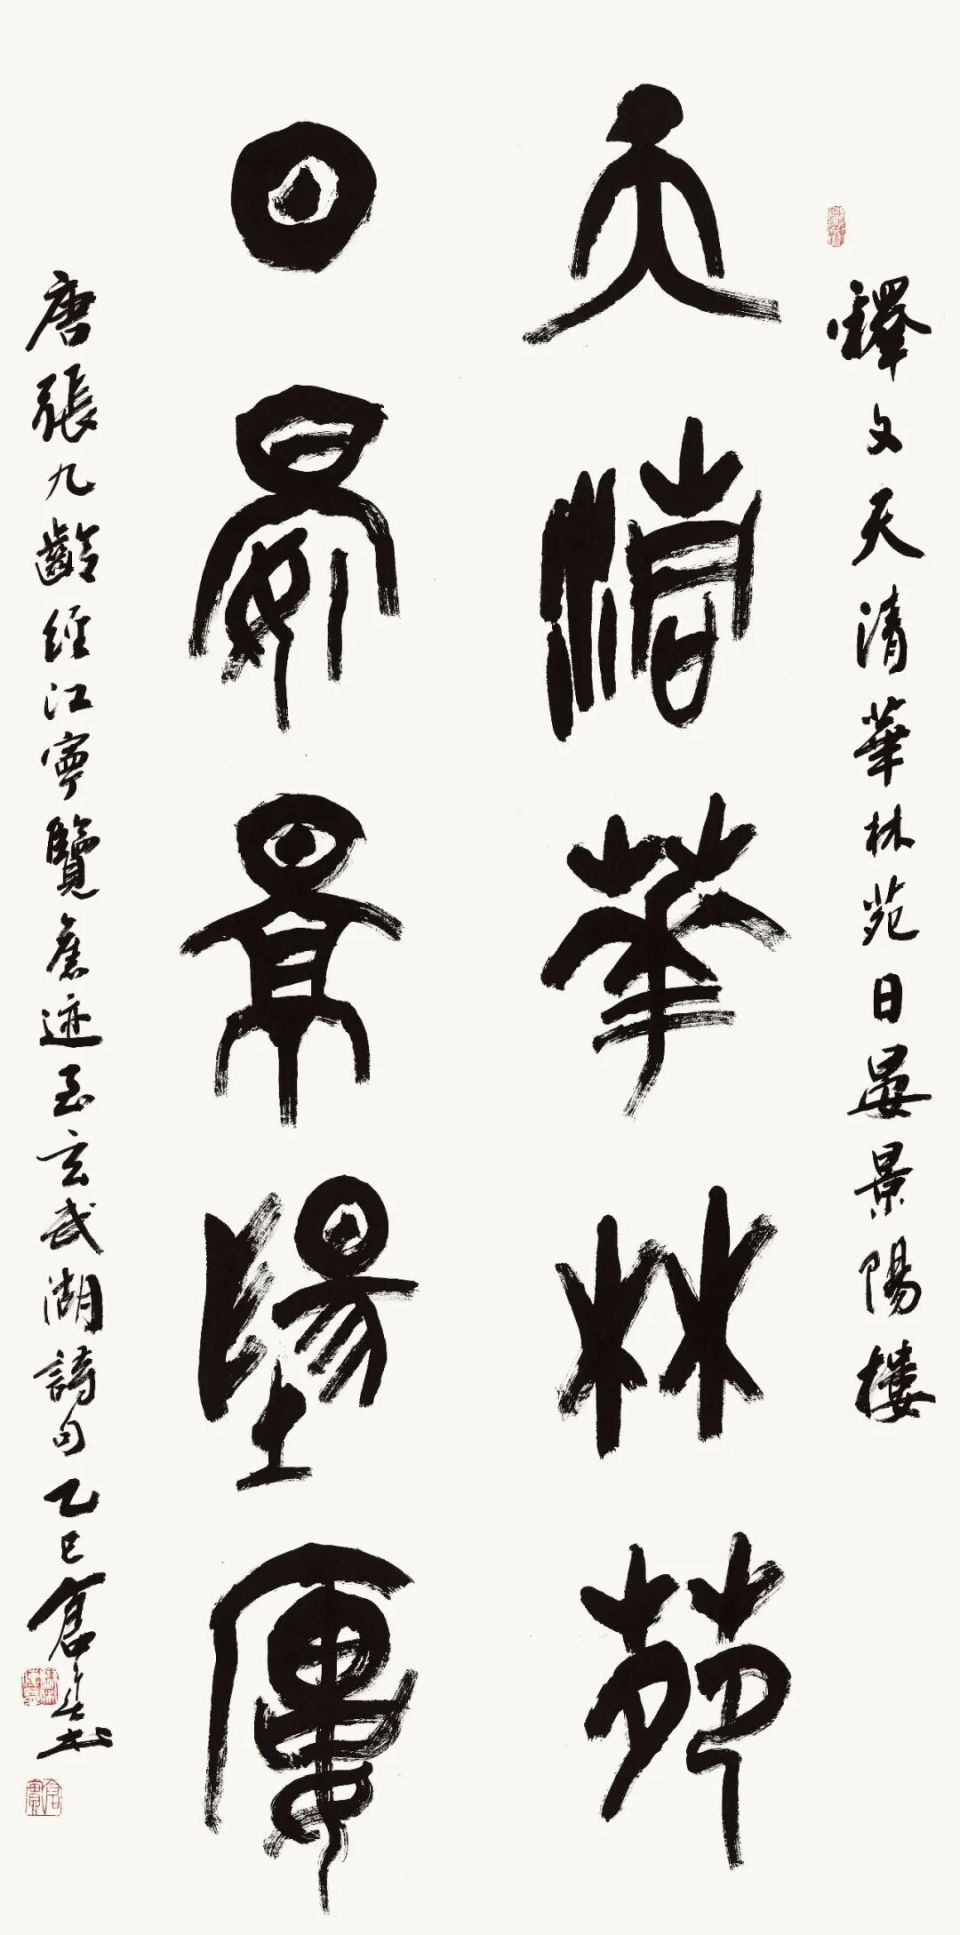 釋文天清華林苑日晏景陽樓
天清華林苑
日晏景陽樓
唐張九齡經江寧覽舊迹至玄武湖詩句乙巳書